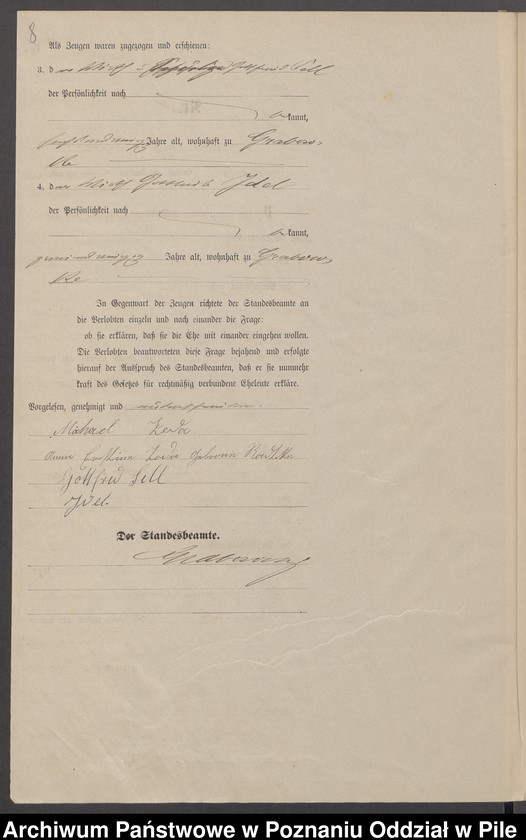 8
Als Zeugen waren zugezogen und erschienen:
3. der Wirth Gottfried Sell
der Persönlichkeit nach
bekannt,
Jahre alt, wohnhaft zu Grabow-
ke
4. der Wirth Gottlieb Jdel
der Persönlichkeit nach
bekannt,
Jahre alt, wohnhaft zu Grabow-
ke
In Gegenwart der Zeugen richtete der Standesbeamte an
die Verlobten einzeln und nach einander die Frage:
ob sie erklären, daß sie die Ehe mit einander eingehen wollen.
Die Verlobten beantworteten diese Frage bejahend und erfolgte
hierauf der Ausspruch des Standesbeamten, daß er sie nunmehr
kraft des Gesetzes für rechtmäßig verbundene Eheleute erkläre.
Vorgelesen, genehmigt und unterschrieben.
Michael
geborene
Gottfried Sell
Jdel.
Der Standesbeamte.
Archiwum Państwowe w Poznaniu Oddział w Pile